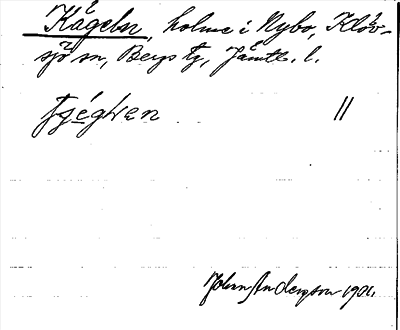 Kågeln, holme i Nybo, Klöv-
sjö sn, Bergs tg, Jämtl. l.
ll
John Anderson 1901.